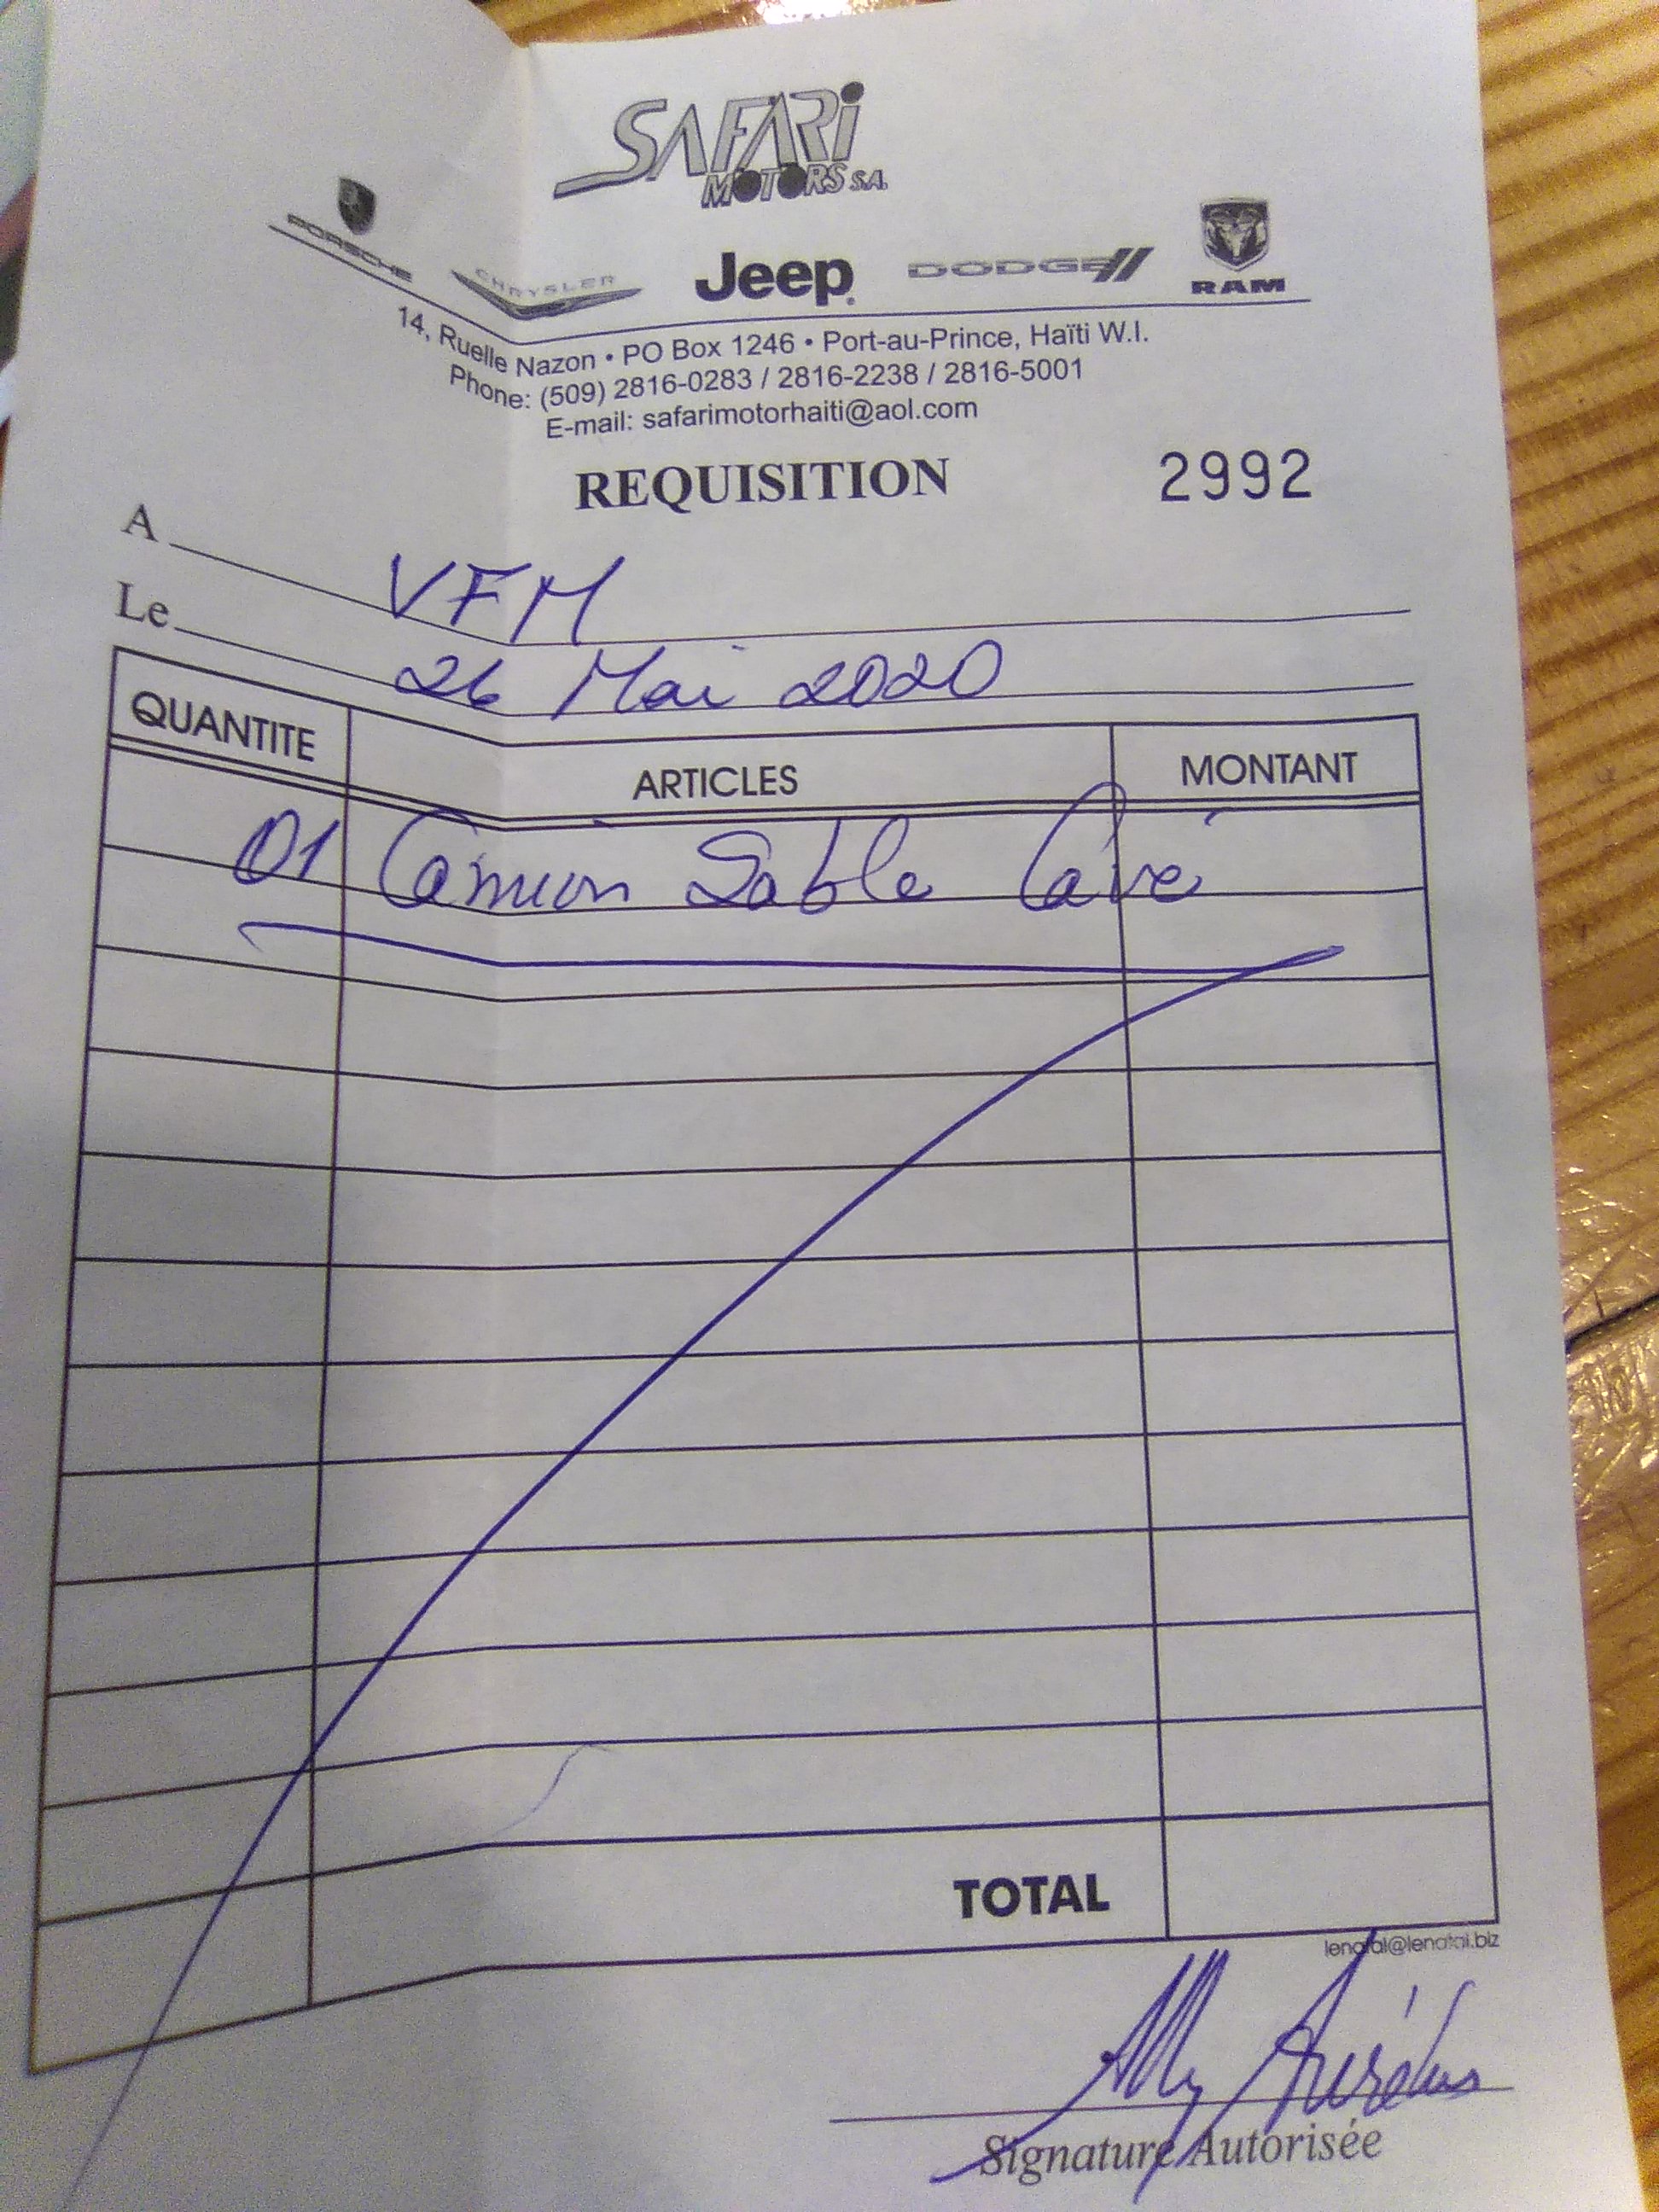 SAFARI
MOTORS S.A.
PORSCHE CHRYSLER Jeep DODGE RAM
14, Ruelle Nazon • PO Box 1246 • Port-au-Prince, Haïti W.I.
Phone: (509) 2816-0283 / 2816-2238 / 2816-5001
E-mail: safarimotorhaiti@aol.com
REQUISITION 2992
A VFM
Le 26 Mai 2020
QUANTITE ARTICLES MONTANT
01 Camion Sable Lavé
TOTAL
Signature Autorisée